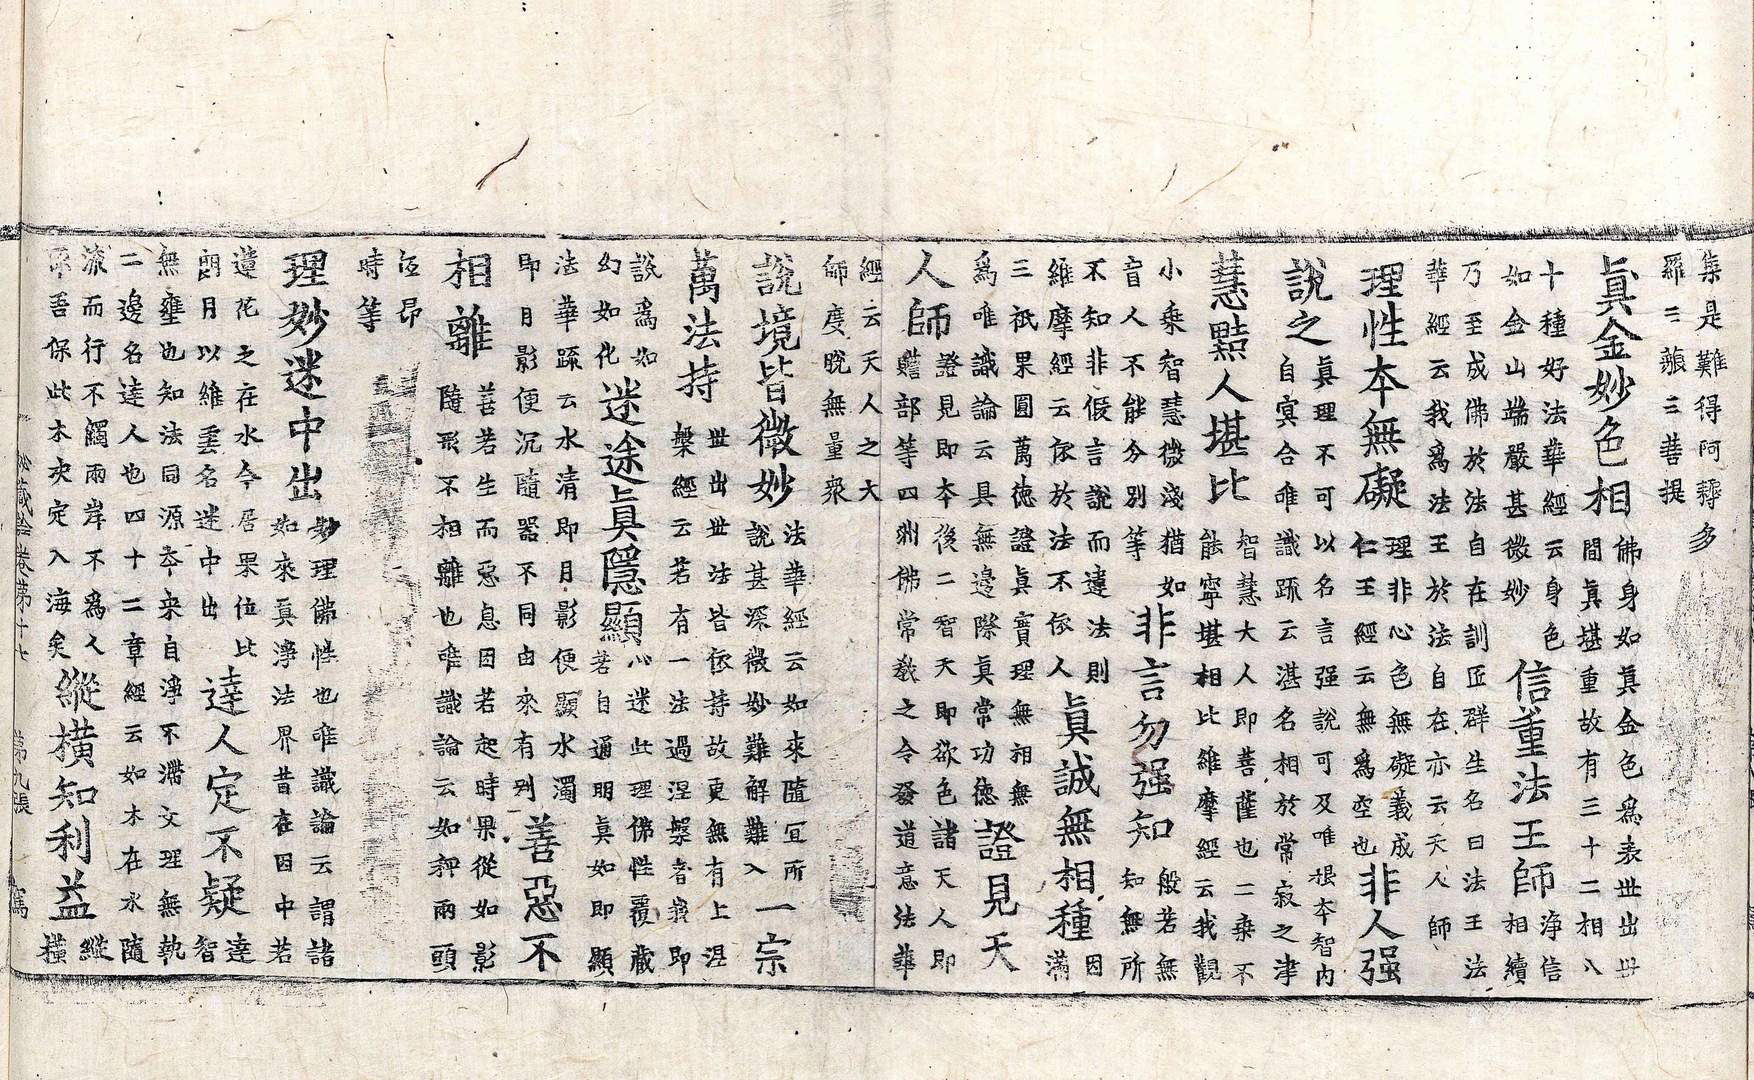 集是難得阿耨多
羅三藐三菩提
眞金妙色相
佛身如眞金色爲表丗出丗
間眞堪重故有三十二相八
十種好法華經云身色
如金山端嚴甚微妙
信重法王師
淨信
相續
乃至成佛於法自在訓匠群生名曰法王法
華經云我爲法王於法自在亦云天人師
理性本無礙
理非心色無礙義成
仁王經云無爲空也
非人强
說之
眞理不可以名言强說可及唯根本智內
自冥合唯識䟽云湛名相於常寂之津
慧點人堪比
智慧大人即菩薩也二乘不
能寧堪相比維摩經云我觀
小乘智慧微淺猶如
盲人不能分別等
非言勿强知
般若無
知無所
不知非假言說而違法則
維摩經云依於法不依人
眞誠無相種
因
滿
三祇果圓萬徳證眞實理無相無
爲唯識論云具無邊際眞常功徳
證見天
人師
證見即本後二智天即欲色諸天人即
贍部等四洲佛常教之令發道意法華
經云天人之大
師度脫無量衆
說境皆微妙
法華經云如來隨冝所
說甚深微妙難解難入
一宗
萬法持
丗出丗法皆依持故更無有上涅
槃經云若有一法過涅槃者我即
說爲如
幻如化
迷途眞隱顯
心迷此理佛性覆藏
若自通明眞如即顯
法華䟽云水清即月影便顯水濁
即月影便沉隨器不同由來有別
善惡不
相離
善若生而惡息因若起時果從如影
隨形不相離也唯識論云如秤兩頭
低昂
時等
理妙迷中出
妙理佛性也唯識論云謂諸
如來眞淨法界昔在因中若
蓮花之在水今居果位比
朗月以維雲名迷中出
達人定不疑
達
智
無壅也知法同源夲來自淨不滯文理無執
二邊名達人也四十二章經云如木在水隨
流而行不觸兩岸不爲人
吾保此木决定入海矣
縱橫知利益
縱
橫
詮卷第十七
第九張